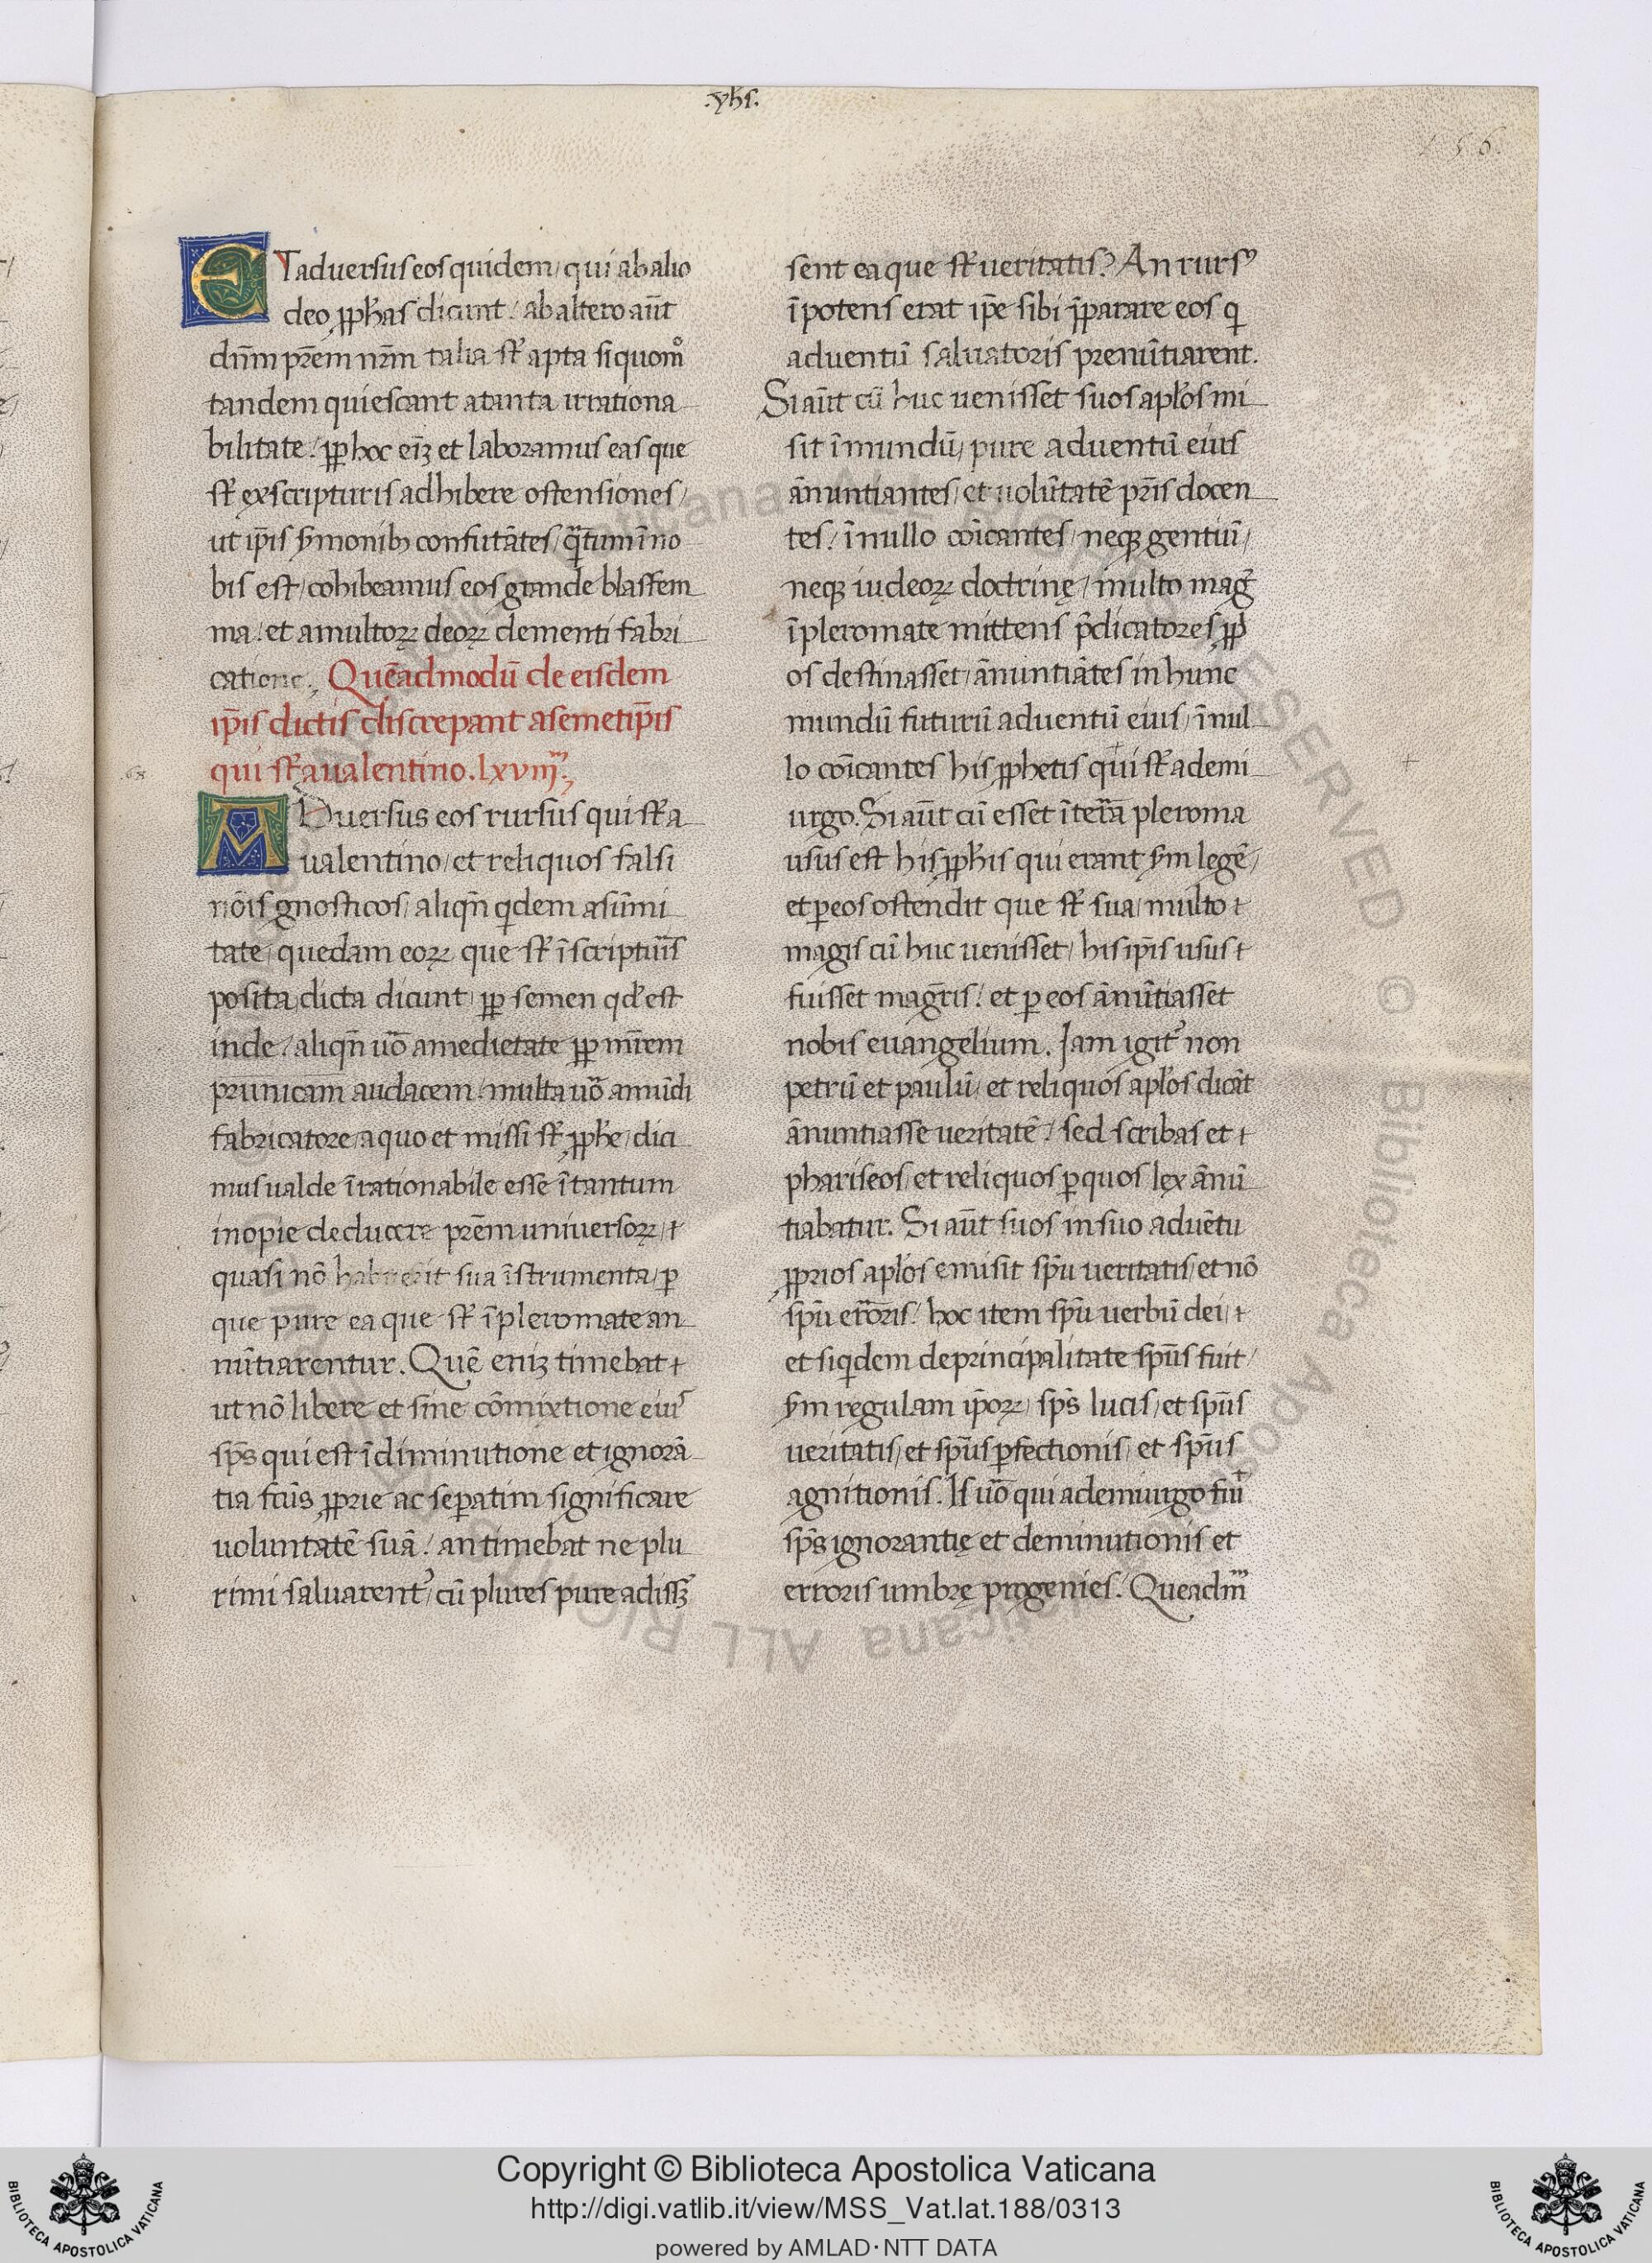 .yhs.
156.
ET aduersus eos quidem/ qui ab alio
deo ꝓphas dicunt/ ab altero aūt
dn̄m pr̄em nr̄m talia st̄ apta siquom̊
tandem quiescant a tanta irrationa
bilitate/ ꝓp hoc eīꝫ et laboramus eas que
st̄ ex scripturis adhibere ostensiones/
ut ip̄is ẜmonibꝫ confutātes/ q̄tum ī no
bis est/ cohibeamus eos grande blasfem
ma/ et a multoꝝ deoꝝ dementi fabri
catione. Quēadmodū de eisdem
ip̄is dictis discrepant a semetip̄is
qui st̄ a ualentino. lxviiij.
ADuersus eos rursus qui st̄ a
ualentino/ et reliquos falsi
nōis gnosticos/ aliqn̄ qͥdem a sūmi
tate/ quedam eoꝝ que st̄ ī scripturis
posita/ dicta dicunt/ ꝓp semen qd̓ est
inde/ aliqn̄ uō a medietate ꝓp mr̄em
prunicam audacem/ multa uō a mūdi
fabricatore/ a quo et missi st̄ ꝓphe/ dici
mus ualde īrationabile esse ī tantum
inopie deducere pr̄em universoꝝ/ t
quasi nō habuerit sua īstrumenta/ ꝑ
que pure ea que st̄ ī pleromate an
nūtiarentur. Quē eniꝫ timebat t
ut nō libere et sine cōmixtione eius
sp̄s qui est ī diminutione et ignorā
tia fcūs ꝓprie ac seꝑatim significare
uoluntatē suā/ an timebat ne plu
rimi saluarent̉/ cū plures pure adissꝫ
sent ea que st̄ ueritatis? An rursꝰ
īpotens erat ip̄e sibi p̄parare eos qͥ
aduentū saluatoris prenūtiarent.
Si aūt cū huc uenisset suos apl̓os mi
sit ī mundū/ pure aduentū eius
ānuntiantes/ et uolūtatē pr̄is docen
tes/ ī nullo cōicantes/ neqꝫ gentiū/
neqꝫ iudeoꝝ doctrinę/ multo mag̓
ī pleromate mittens p̄dicatores ꝓp
os destinasset/ ānuntiātes in hunc
mundū futurū aduentū eius/ ī nul
lo cōicantes his ꝓphetis qui st̄ a demi
urgo. Si aūt cū esset ī terā pleroma
usus est his ꝓphis qui erant ẜm legē/
et ꝑ eos ostendit que st̄ sua/ multo t
magis cū huc uenisset/ his ip̄is usus t
fuisset magr̄is/ et ꝑ eos ānūtiasset
nobis euangelium. Jam igit̉ non
petrū et paulū/ et reliquos apl̓os dicāt
ānuntiasse ueritatē/ sed scribas et t
phariseos/ et reliquos ꝑ quos lex ānū
tiabatur. Si aūt suos in suo aduētu
ꝓprios apl̓os emisit sp̄u ueritatis/ et nō
sp̄u eroris/ hoc item sp̄u uerbū dei/ t
et siqͥdem de principalitate sp̄us fuit/
ẜm regulam ip̄oꝝ/ sp̄s lucis/ et sp̄us
ueritatis/ et sp̄us ꝑfectionis/ et sp̄us
agnitionis. Is uō qui a demiurgo fuit
sp̄s ignorantię et deminutionis et
erroris umbrę progenies. Queadm̄
Copyright © Biblioteca Apostolica Vaticana
http://digi.vatlib.it/view/MSS_Vat.lat.188/0313
powered by AMLAD·NTT DATA
BIBLIOTECA APOSTOLICA VATICANA
BIBLIOTECA APOSTOLICA VATICANA